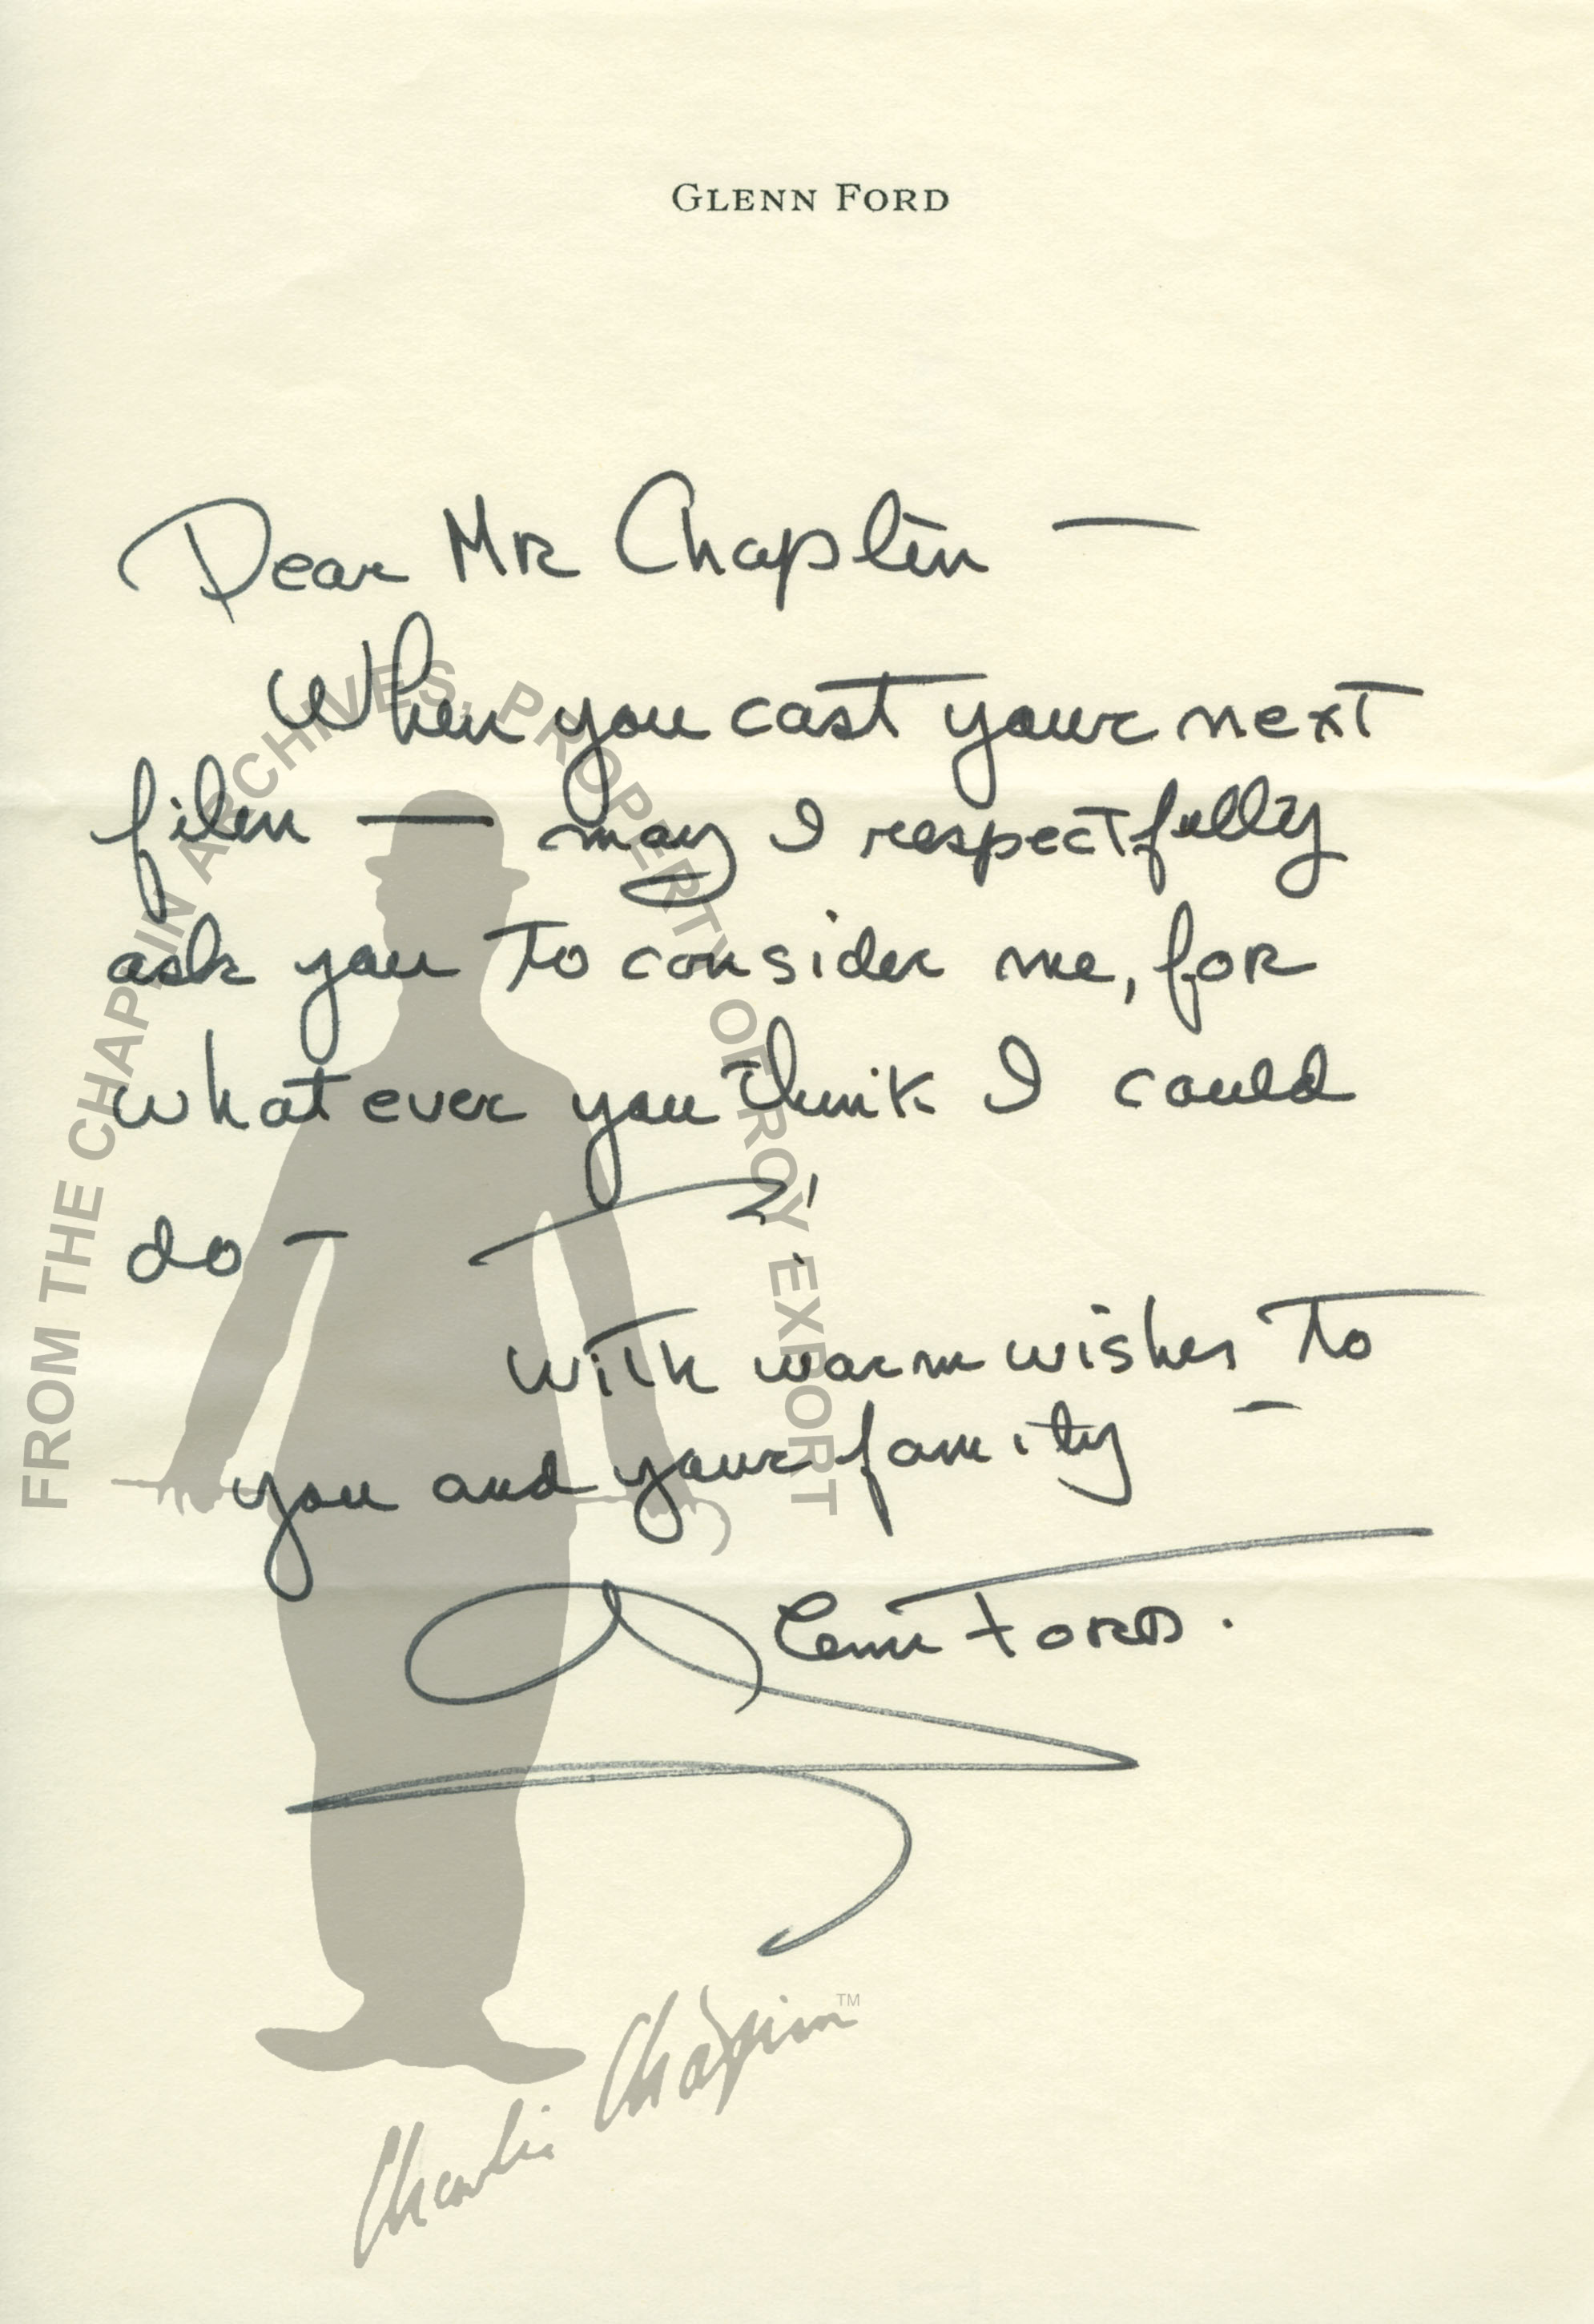 GLENN FORD
Dear Mr Chaplin —
When you cast your next
film — may I respectfully
ask you to consider me, for
whatever you think I could
do —
with warm wishes to
you and your family —
Glenn Ford.
FROM THE CHAPLIN ARCHIVES, PROPERTY OF ROY EXPORT
Charlie Chaplin™